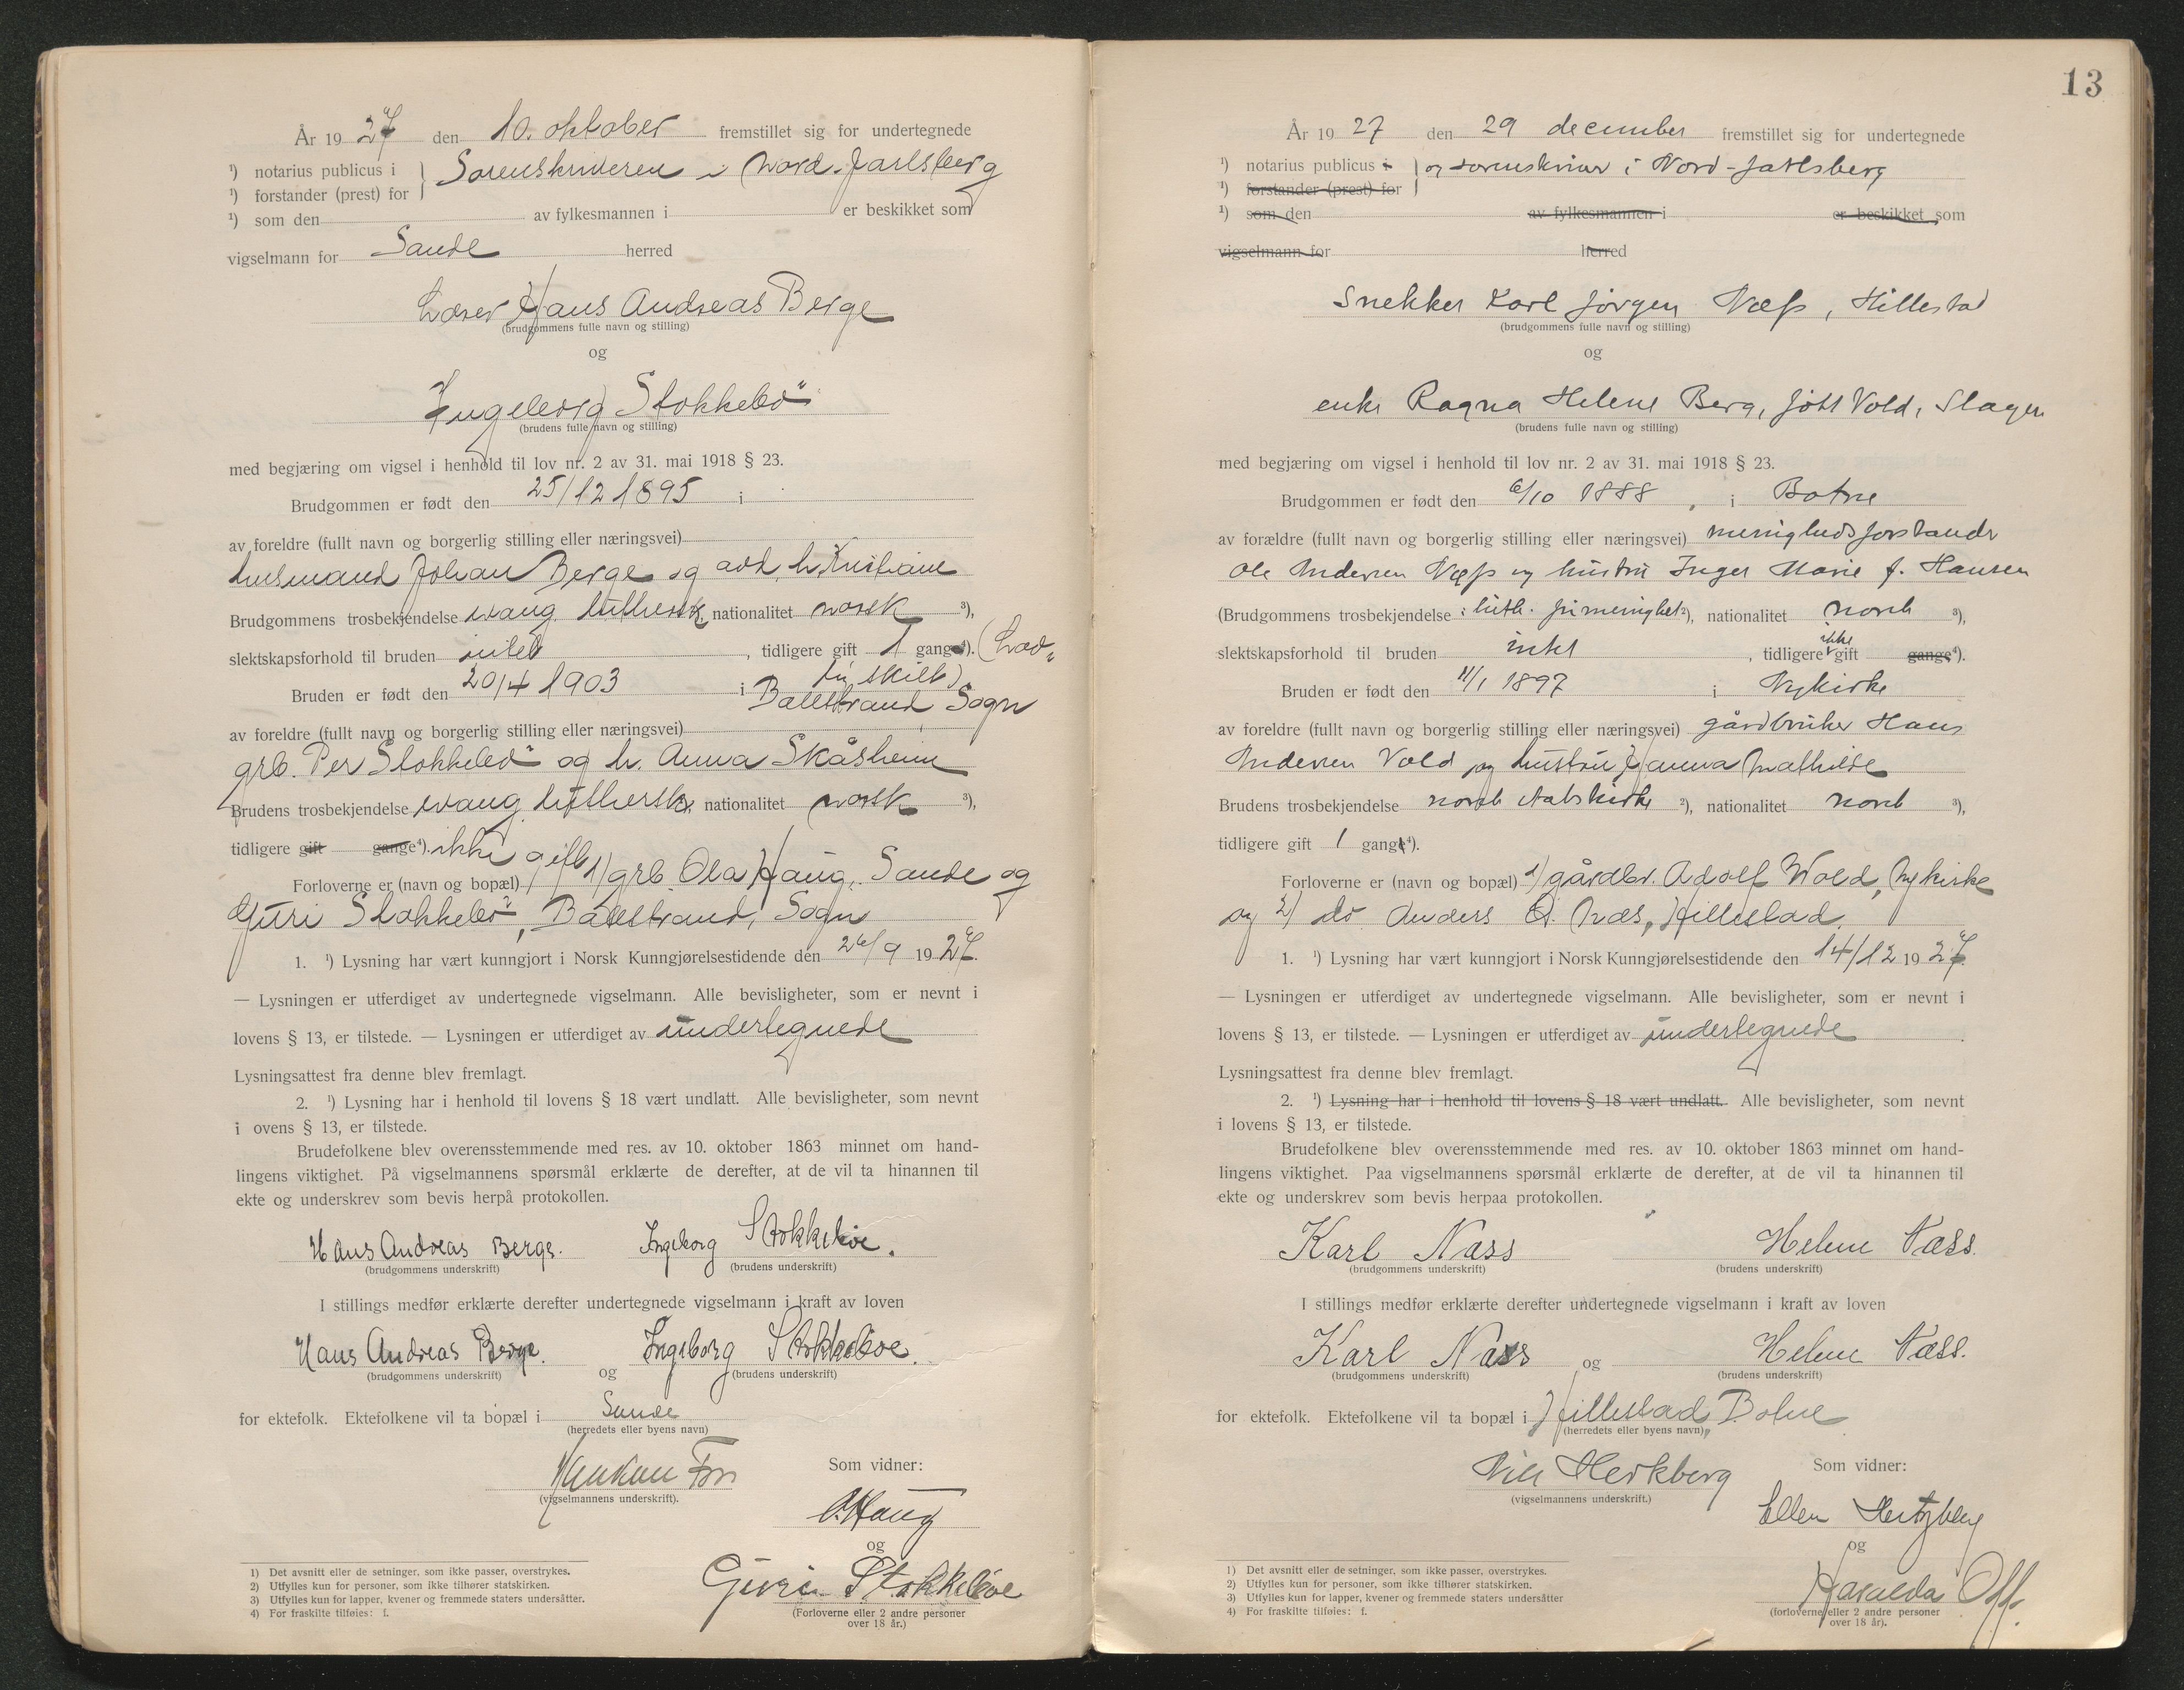 År 1927 den 10. oktober fremstillet sig for undertegnede
¹) notarius publicus i } Sorenskriveren i Nord-Jarlsberg
¹) forstander (prest) for
¹) som den av fylkesmannen i er beskikket som
vigselmann for Sande herred
Lærer Hans Andreas Berge
(brudgommens fulle navn og stilling)
og
Ingeborg Stokkebö
(brudens fulle navn og stilling)
med begjæring om vigsel i henhold til lov nr. 2 av 31. mai 1918 § 23.
Brudgommen er født den 25/12 1895 i
av foreldre (fullt navn og borgerlig stilling eller næringsvei)
husmand Johan Berge og avd. h. Kristiane
Brudgommens trosbekjendelse evang. luthersk, nationalitet norsk ³),
slektskapsforhold til bruden intet, tidligere gift 1 gang ⁴). (Lov-
lig skilt)
Bruden er født den 20/4 1903 i Balestrand, Sogn
av foreldre (fullt navn og borgerlig stilling eller næringsvei)
grb. Per Stokkebö og h. Anna Skåsheim
Brudens trosbekjendelse evang. luthersk, nationalitet norsk ³),
tidligere gift gange⁴). ikke gift
Forloverne er (navn og bopæl) 1) grb. Ola Haug, Sande og
Guri Stokkebö, Balestrand, Sogn
1. ¹) Lysning har vært kunngjort i Norsk Kunngjørelsestidende den 26/9 1927.
— Lysningen er utferdiget av undertegnede vigselmann. Alle bevisligheter, som er nevnt i
lovens § 13, er tilstede. — Lysningen er utferdiget av undertegnede
Lysningsattest fra denne blev fremlagt.
2. ¹) Lysning har i henhold til lovens § 18 vært undlatt. Alle bevisligheter, som nevnt
i ovens § 13, er tilstede.
Brudefolkene blev overensstemmende med res. av 10. oktober 1863 minnet om hand-
lingens viktighet. På vigselmannens spørsmål erklærte de derefter, at de vil ta hinannen til
ekte og underskrev som bevis herpå protokollen.
Hans Andreas Berge. Ingeborg Stokkeböe.
(brudgommens underskrift) (brudens underskrift)
I stillings medfør erklærte derefter undertegnede vigselmann i kraft av loven
Hans Andreas Berge. og Ingeborg Stokkeböe.
(brudgommens underskrift) (brudens underskrift)
for ektefolk. Ektefolkene vil ta bopæl i Sande
(herredets eller byens navn)
(vigselmannens underskrift).
Som vidner:
O. Haug
og
Guri Stokkeböe
(Forloverne eller 2 andre personer
over 18 år.)
1) Det avsnitt eller de setninger, som ikke passer, overstrykes.
2) Utfylles kun for personer, som ikke tilhører statskirken.
3) Utfylles kun for lapper, kvener og fremmede staters undersåtter.
4) For fraskilte tilføies: f.
13
År 1927 den 29 december fremstillet sig for undertegnede
¹) notarius publicus i } og sorenskriver i Nord-Jarlsberg
¹) forstander (prest) for
¹) som den av fylkesmannen i er beskikket som
vigselmann for herred
Snekker Karl Jörgen Næss, Hillestad
(brudgommens fulle navn og stilling)
og
enke Ragna Helene Berg, født Vold, Slagen
(brudens fulle navn og stilling)
med begjæring om vigsel i henhold til lov nr. 2 av 31. mai 1918 § 23.
Brudgommen er født den 6/10 1888, i Botne
av forældre (fullt navn og borgerlig stilling eller næringsvei) menighedsforstander
Ole Andersen Næss og hustru Inger Marie f. Hansen
(Brudgommens trosbekjendelse: luth. frimenighet ²), nationalitet norsk ³),
slektskapsforhold til bruden intet, tidligere ikke gift gange⁴).
Bruden er født den 11/1 1897 i Nykirke
av foreldre (fullt navn og borgerlig stilling eller næringsvei) gårdbruker Hans
Andersen Vold og hustru Hanna Mathilde
Brudens trosbekjendelse norsk statskirke ²), nationalitet norsk ³),
tidligere gift 1 gang⁴).
Forloverne er (navn og bopæl) 1) gårdbr. Adolf Wold, Nykirke
og 2) do Anders O. Næs, Hillestad.
1. ¹) Lysning har vært kunngjort i Norsk Kunngjørelsestidende den 14/12 1927.
— Lysningen er utferdiget av undertegnede vigselmann. Alle bevisligheter, som er nevnt i
lovens § 13, er tilstede. — Lysningen er utferdiget av undertegnede
Lysningsattest fra denne blev fremlagt.
2. ¹) Lysning har i henhold til lovens § 18 vært undlatt. Alle bevisligheter, som nevnt
i lovens § 13, er tilstede.
Brudefolkene blev overensstemmende med res. av 10. oktober 1863 minnet om hand-
lingens viktighet. Paa vigselmannens spørsmål erklærte de derefter, at de vil ta hinannen til
ekte og underskrev som bevis herpaa protokollen.
Karl Næss Helene Næss.
(brudgommens underskrift) (brudens underskrift)
I stillings medfør erklærte derefter undertegnede vigselmann i kraft av loven
Karl Næss og Helene Næss.
(brudgommens underskrift) (brudens underskrift)
for ektefolk. Ektefolkene vil ta bopæl i Hillestad, Botne
(herredets eller byens navn),
Hertzberg
(vigselmannens underskrift.)
Som vidner:
Ellen Hertzberg
og
Haralda
(forloverne eller 2 andre personer
over 18 år).
1) Det avsnitt eller de setninger, som ikke passer, overstrykes.
2) Utfylles kun for personer, som ikke tilhører statskirken.
3) Utfylles kun for lapper, kvener og fremmede staters undersåtter
4) For fraskilte tilføies: f.